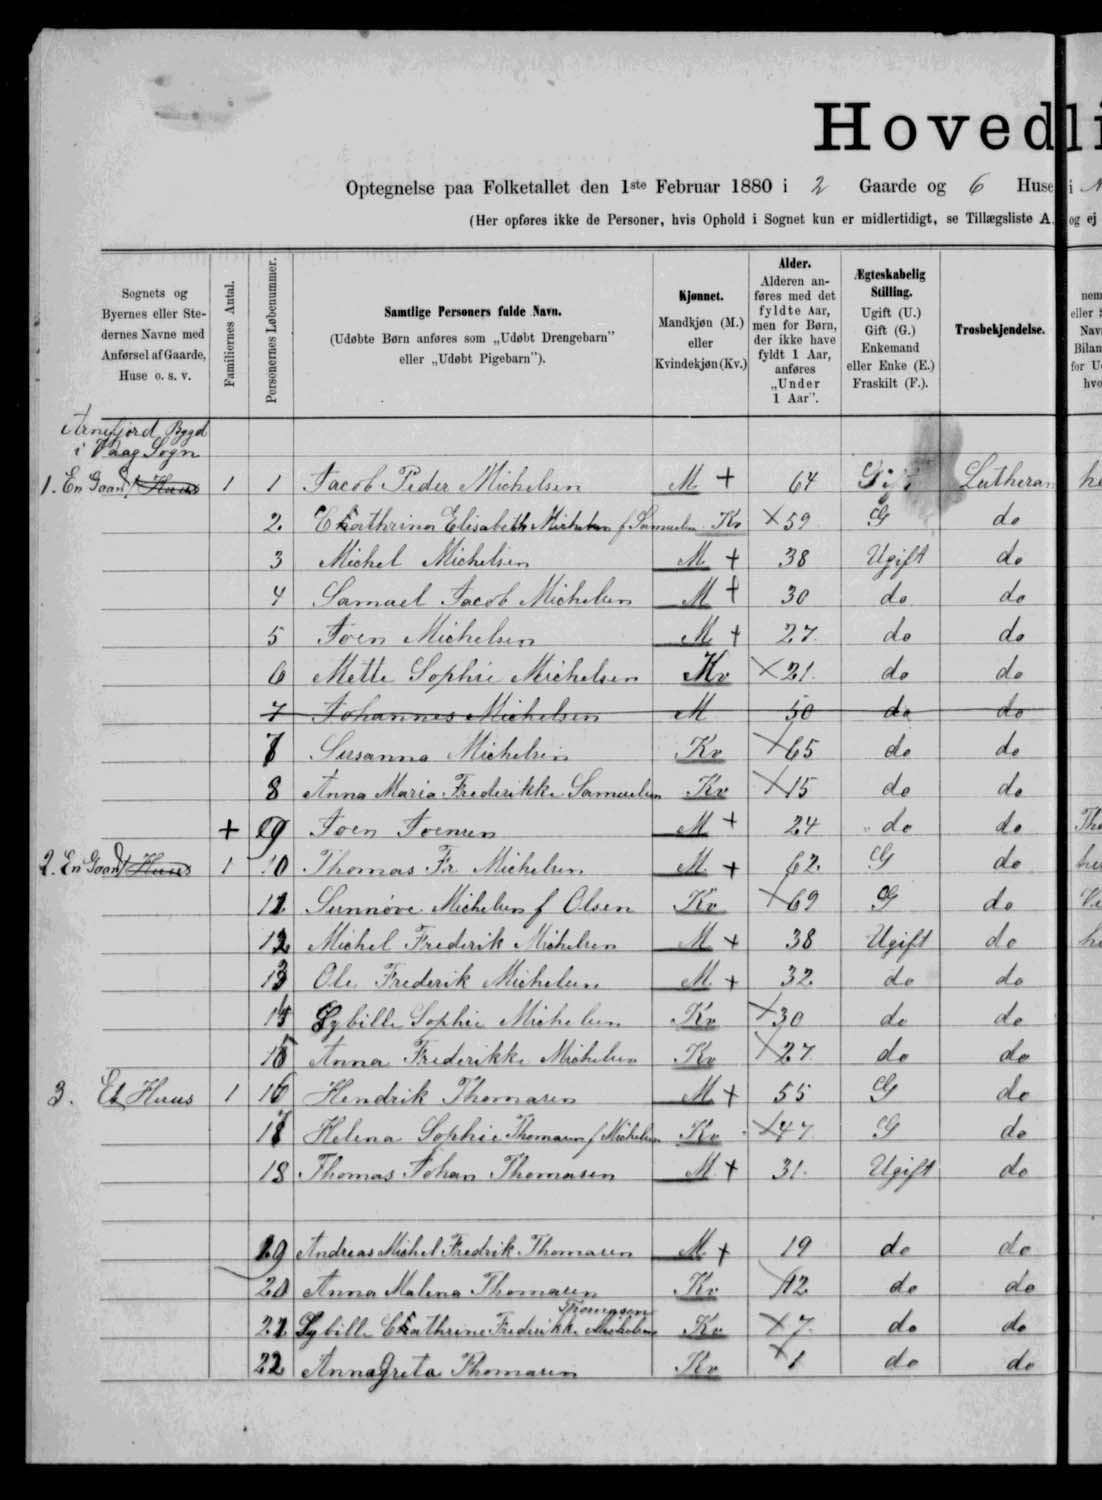 Hovedli
Optegnelse paa Folketallet den 1ste Februar 1880 i 2 Gaarde og 6 Huse i N
(Her opføres ikke de Personer, hvis Ophold i Sognet kun er midlertidigt, se Tillægsliste A. og ej
Sognets og Byernes eller Stedernes Navne med Anførsel af Gaarde, Huse o. s. v.
Familiernes Antal.
Personernes Løbenummer.
Samtlige Personers fulde Navn.
(Udøbte Børn anføres som „Udøbt Drengebarn"
eller „Udøbt Pigebarn").
Kjønnet.
Mandkjøn (M.)
eller
Kvindekjøn (Kv.)
Alder.
Alderen an-
føres med det
fyldte Aar,
men for Børn,
der ikke have
fyldt 1 Aar,
anføres
„Under
1 Aar".
Ægteskabelig
Stilling.
Ugift (U.)
Gift (G.)
Enkemand
eller Enke (E.)
Fraskilt (F.).
Trosbekjendelse.
Arnefjord Bygd
i Vaag Sogn
1. En Gaard Huus 1 1 Jacob Peder Michelsen M + 64 Gift Lutheran he
2. Cathrina Elisabeth Michelsen f Samuelsen Kv × 59 G do
3 Michel Michelsen M + 38 Ugift do
4 Samuel Jacob Michelsen M + 30 do do
5 Joen Michelsen M + 27. do do
6 Mette Sophie Michelsen Kv × 21. do do
7 Johannes Michelsen M 50 do do
7 Susanna Michelsen Kv × 65 do do
8 Anna Maria Frederikke Samuelsen Kv × 15 do do
+ 9 Joen Joensen M + 24 do do
2. En Gaard Huus 1 10 Thomas Fr Michelsen M. + 62. G do
11 Sunnøve Michelsen f Olsen Kv × 69 G do
12 Michel Frederik Michelsen M + 38 Ugift do
13 Ole Frederik Michelsen M. + 32. do do
14 Sybille Sophie Michelsen Kv × 30 do do
15 Anna Frederikke Michelsen Kv × 27. do do
3. Et Huus 1 16 Hendrik Thomasen M + 55 G do
17 Helena Sophie Thomasen f Michelsen Kv × 47. G do
18 Thomas Johan Thomasen M. + 31. Ugift do
19 Andreas Michel Fredrik Thomasen M + 19 do do
20 Anna Malena Thomasen Kv × 12. do do
Thomasen
21 Sybille Cathrine Frederikke Michelsen Kv × 7. do do
22 Anna Greta Thomasen Kv × 1 do do